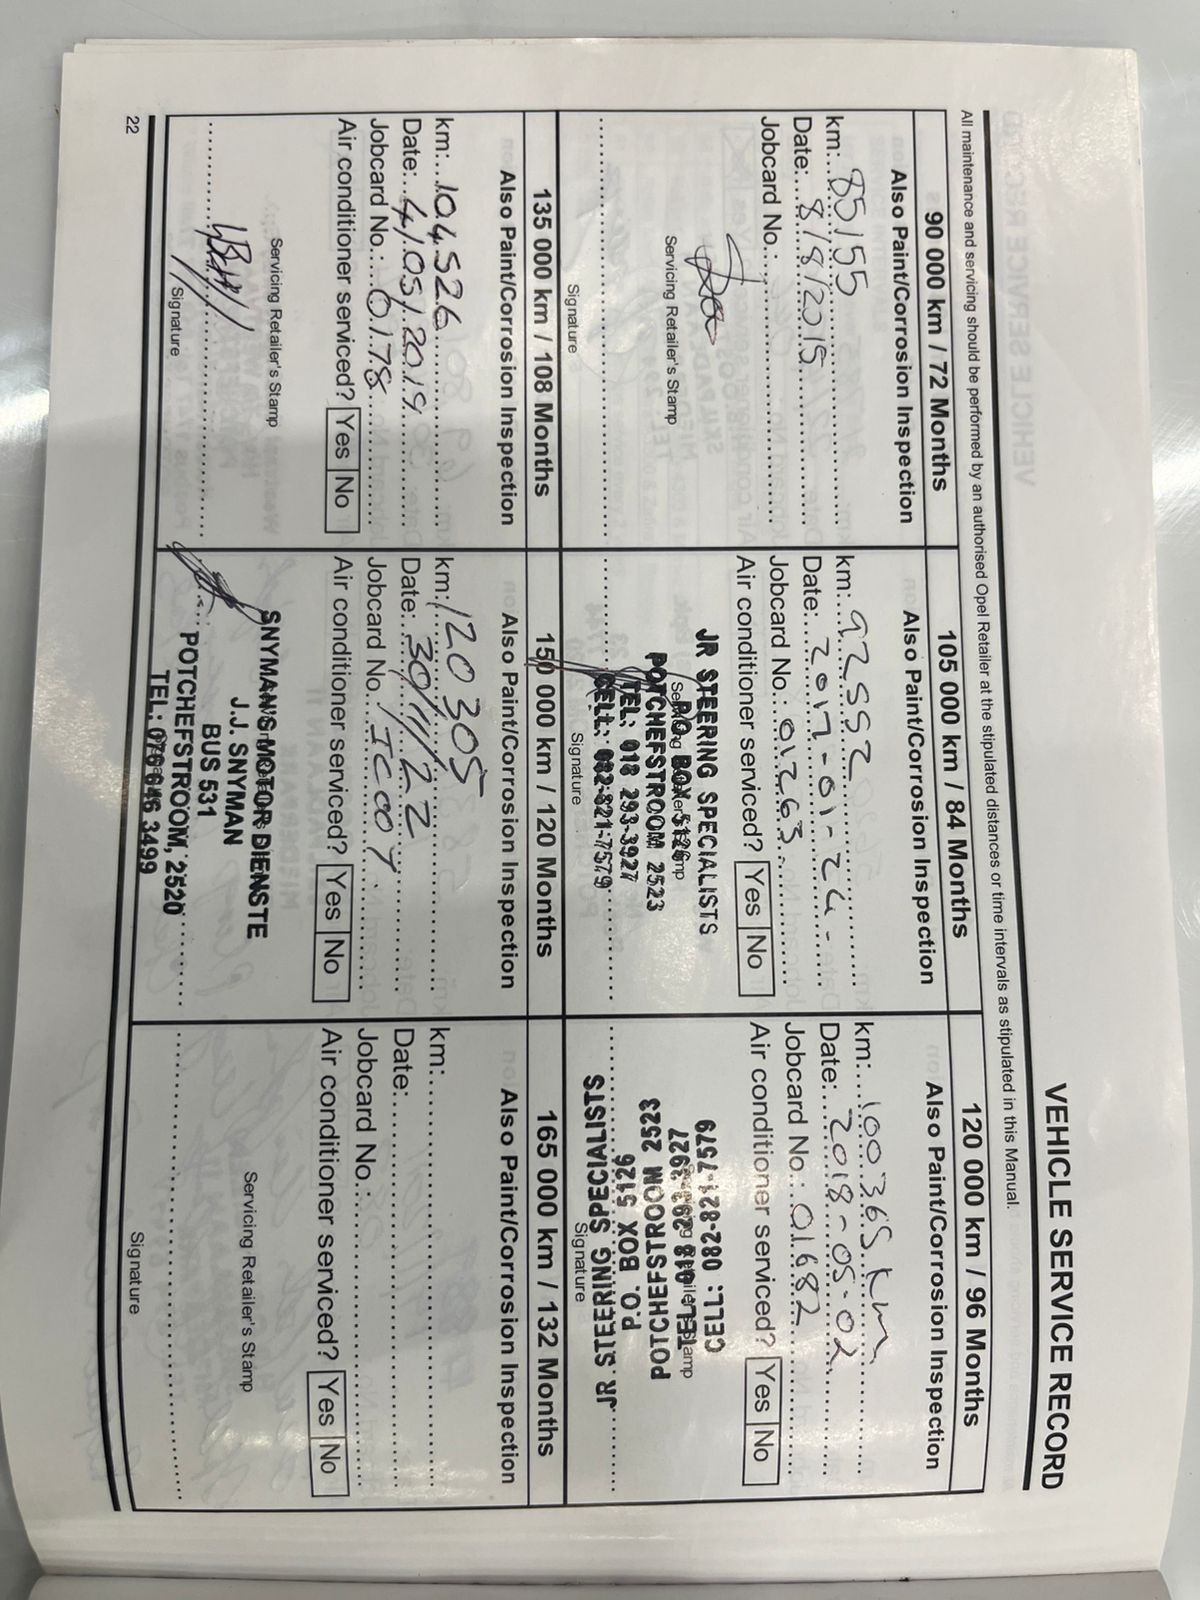 VEHICLE SERVICE RECORD
All maintenance and servicing should be performed by an authorised Opel Retailer at the stipulated distances or time intervals as stipulated in this Manual.
90 000 km / 72 Months
Also Paint/Corrosion Inspection
km: 85155
Date: 8/8/2015
Jobcard No.:
Servicing Retailer's Stamp
Signature
105 000 km / 84 Months
Also Paint/Corrosion Inspection
km: 92552
Date: 2017-01-24
Jobcard No.: 01263
Air conditioner serviced? Yes No
JR STEERING SPECIALISTS
P.O. BOX 5126
POTCHEFSTROOM 2523
TEL: 018 293-3927
CELL: 082-821-7579
Signature
120 000 km / 96 Months
Also Paint/Corrosion Inspection
km: 100365 km
Date: 2018-05-02
Jobcard No.: 01682
Air conditioner serviced? Yes No
JR STEERING SPECIALISTS
P.O. BOX 5126
POTCHEFSTROOM 2523
TEL: 018 293-3927
CELL: 082-821-7579
Signature
135 000 km / 108 Months
Also Paint/Corrosion Inspection
km: 104526
Date: 4/05/2019
Jobcard No.: 0178
Air conditioner serviced? Yes No
Servicing Retailer's Stamp
Signature
150 000 km / 120 Months
Also Paint/Corrosion Inspection
km: 120305
Date: 30/11/22
Jobcard No.
Air conditioner serviced? Yes No
SNYMAN'S MOTOR DIENSTE
J.J. SNYMAN
BUS 531
POTCHEFSTROOM, 2520
TEL: 076 646 3499
165 000 km / 132 Months
Also Paint/Corrosion Inspection
km:
Date:
Jobcard No.:
Air conditioner serviced? Yes No
Servicing Retailer's Stamp
Signature
22